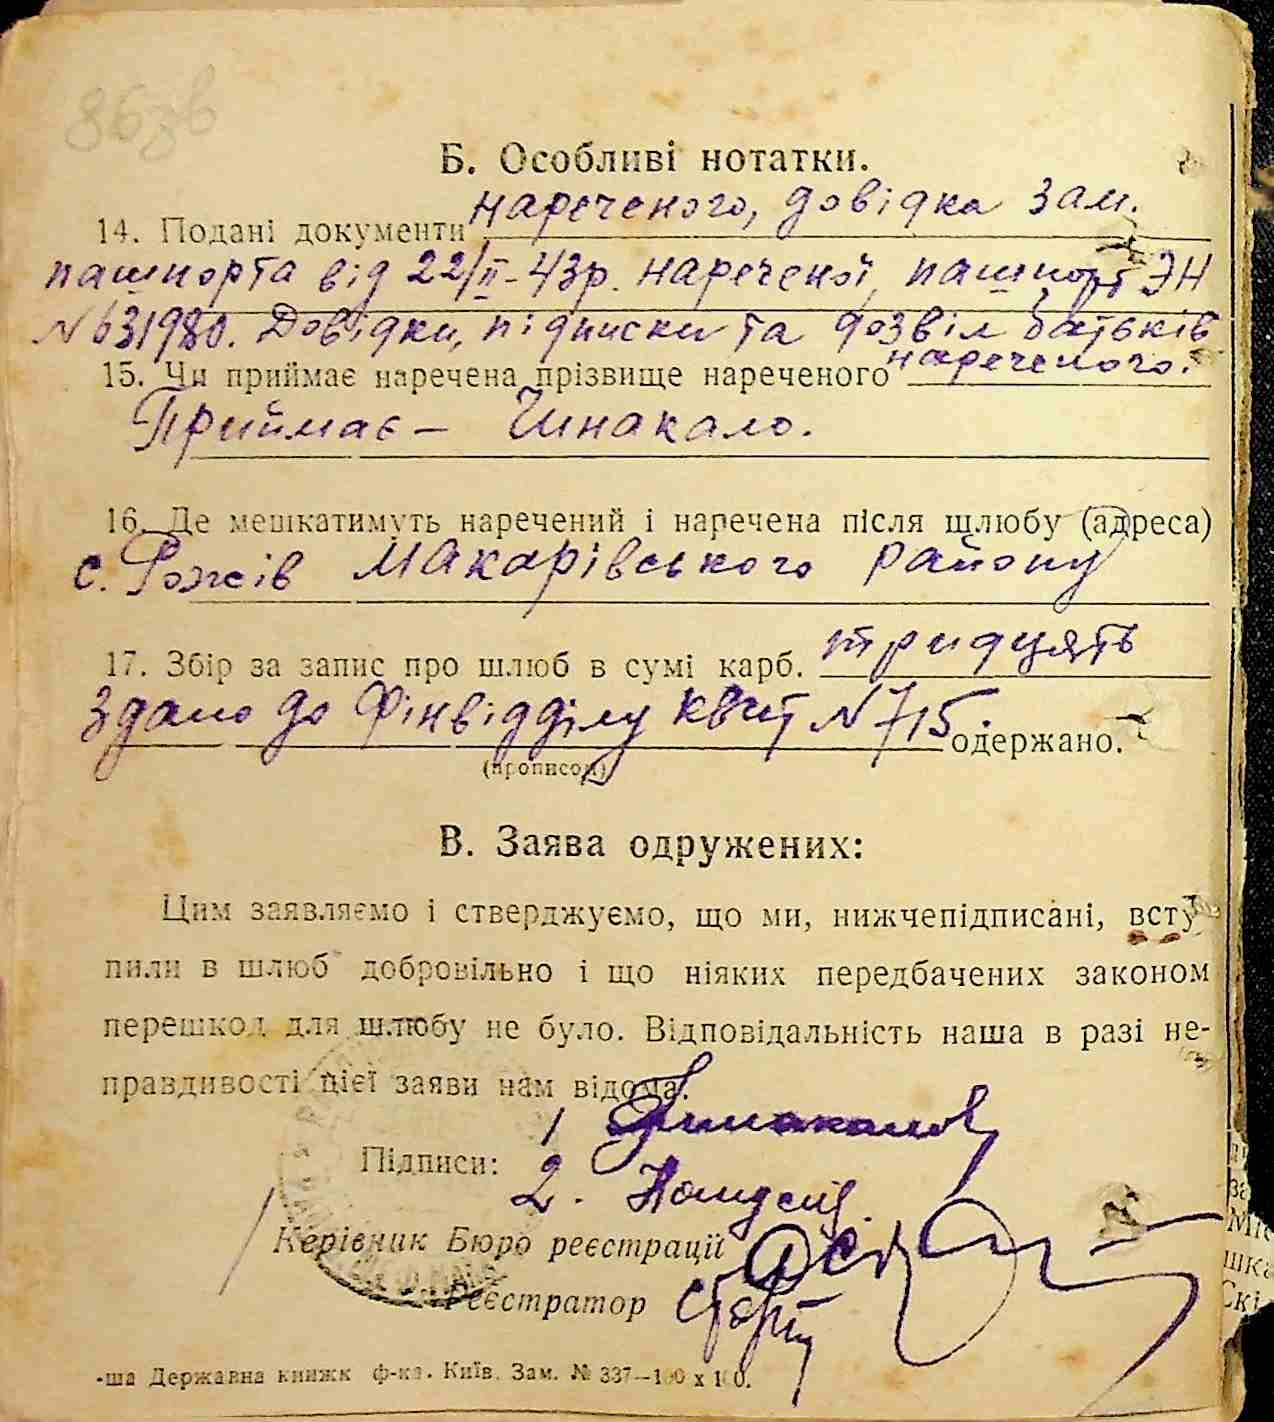 86зв
Б. Особливі нотатки.
14. Подані документи нареченого, довідка зам.
пашпорта від 22/II-43р. нареченої, пашпорт ЭН
№631980. Довідки, підписки та дозвіл батьків
нареченого.
15. Чи приймає наречена прізвище нареченого
Приймає – Чинакало.
16. Де мешкатимуть наречений і наречена після шлюбу (адреса)
с. Рожів Макарівського району
17. Збір за запис про шлюб в сумі карб. тридцять
Здано до Фінвідділу квит №715. одержано.
(прописом)
В. Заява одружених:
Цим заявляємо і стверджуємо, що ми, нижчепідписані, всту-
пили в шлюб добровільно і що ніяких передбачених законом
перешкод для шлюбу не було. Відповідальність наша в разі не-
правдивості цієї заяви нам відома.
1
Підписи:
2.
Керівник Бюро реєстрації
Реєстратор
-ша Державна книжк ф-ка. Київ. Зам. № 337—100 x 100.